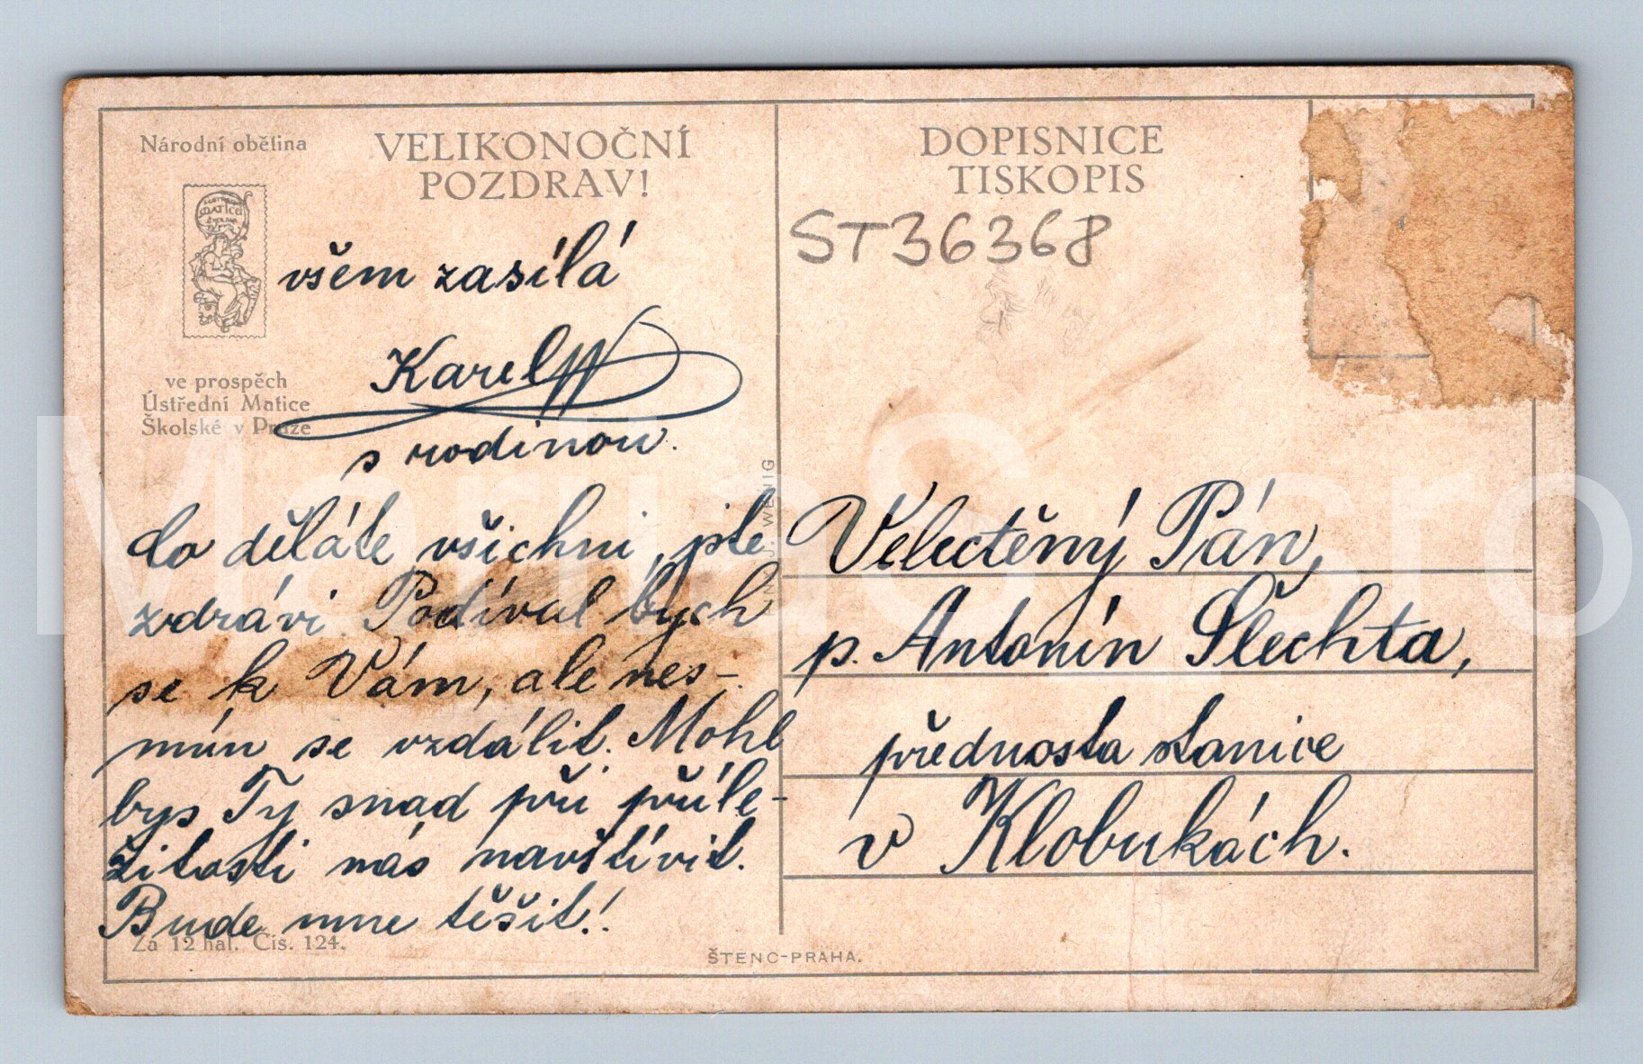 Národní obětina
VELIKONOČNÍ
POZDRAV!
všem zasílá
Karel W
ve prospěch
Ústřední Matice
Školské v Praze
s rodinou.
Co děláte všichni, jste
zdrávi. Podíval bych
se k Vám, ale nes-
mím se vzdálit. Mohl
bys Ty snad při příle-
žitosti nás navštívit.
Bude mne těšit!
Za 12 hal. Čís. 124.
J. WENIG
ŠTENC-PRAHA.
DOPISNICE
TISKOPIS
ST36368
Velectěný Pán,
p. Antonín Šlechta,
přednosta stanice
v Klobukách.